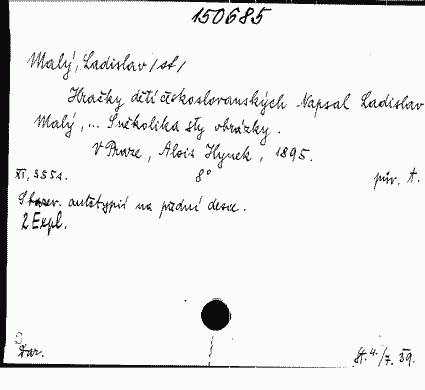 150685
Malý, Ladislav /st/
Hračky dětí českoslovanských. Napsal Ladislav
Malý, ... S několika sty obrázky.
V Praze, Alois Hynek, 1895.
XI, 355 s. 8° pův. A.
S barev. autotypií na přední desce.
2 Expl.
Dar. St. 4./7. 39.